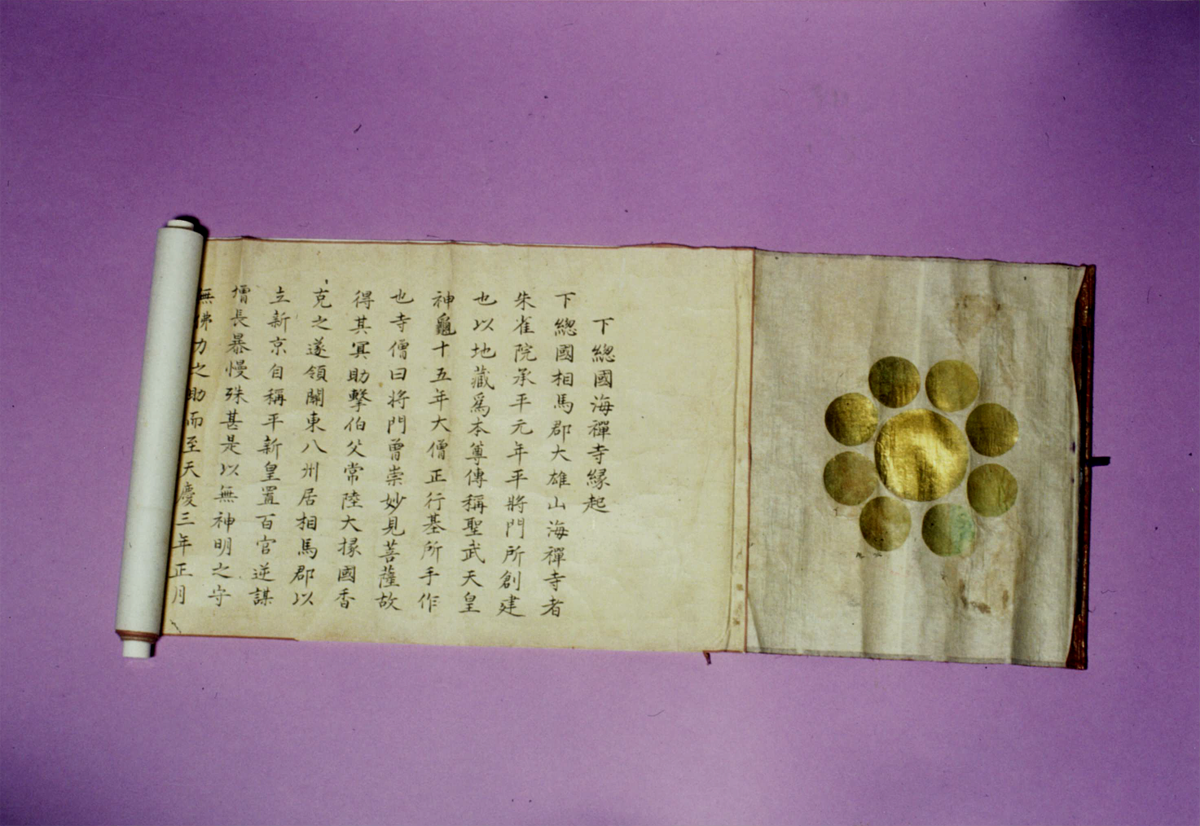 下總國海禪寺縁起
下總國相馬郡大雄山海禪寺者
朱雀院承平元年平將門所創建
也以地藏爲本尊傳稱聖武天皇
神龜十五年大僧正行基所手作
也寺僧曰将門曾崇妙見菩薩故
得其冥助擊伯父常陸大掾國香
克之遂領關東八州居相馬郡以
立新京自稱平新皇置百官逆謀
增長暴慢殊甚是以無神明之守
無佛力之助而至天慶三年正月